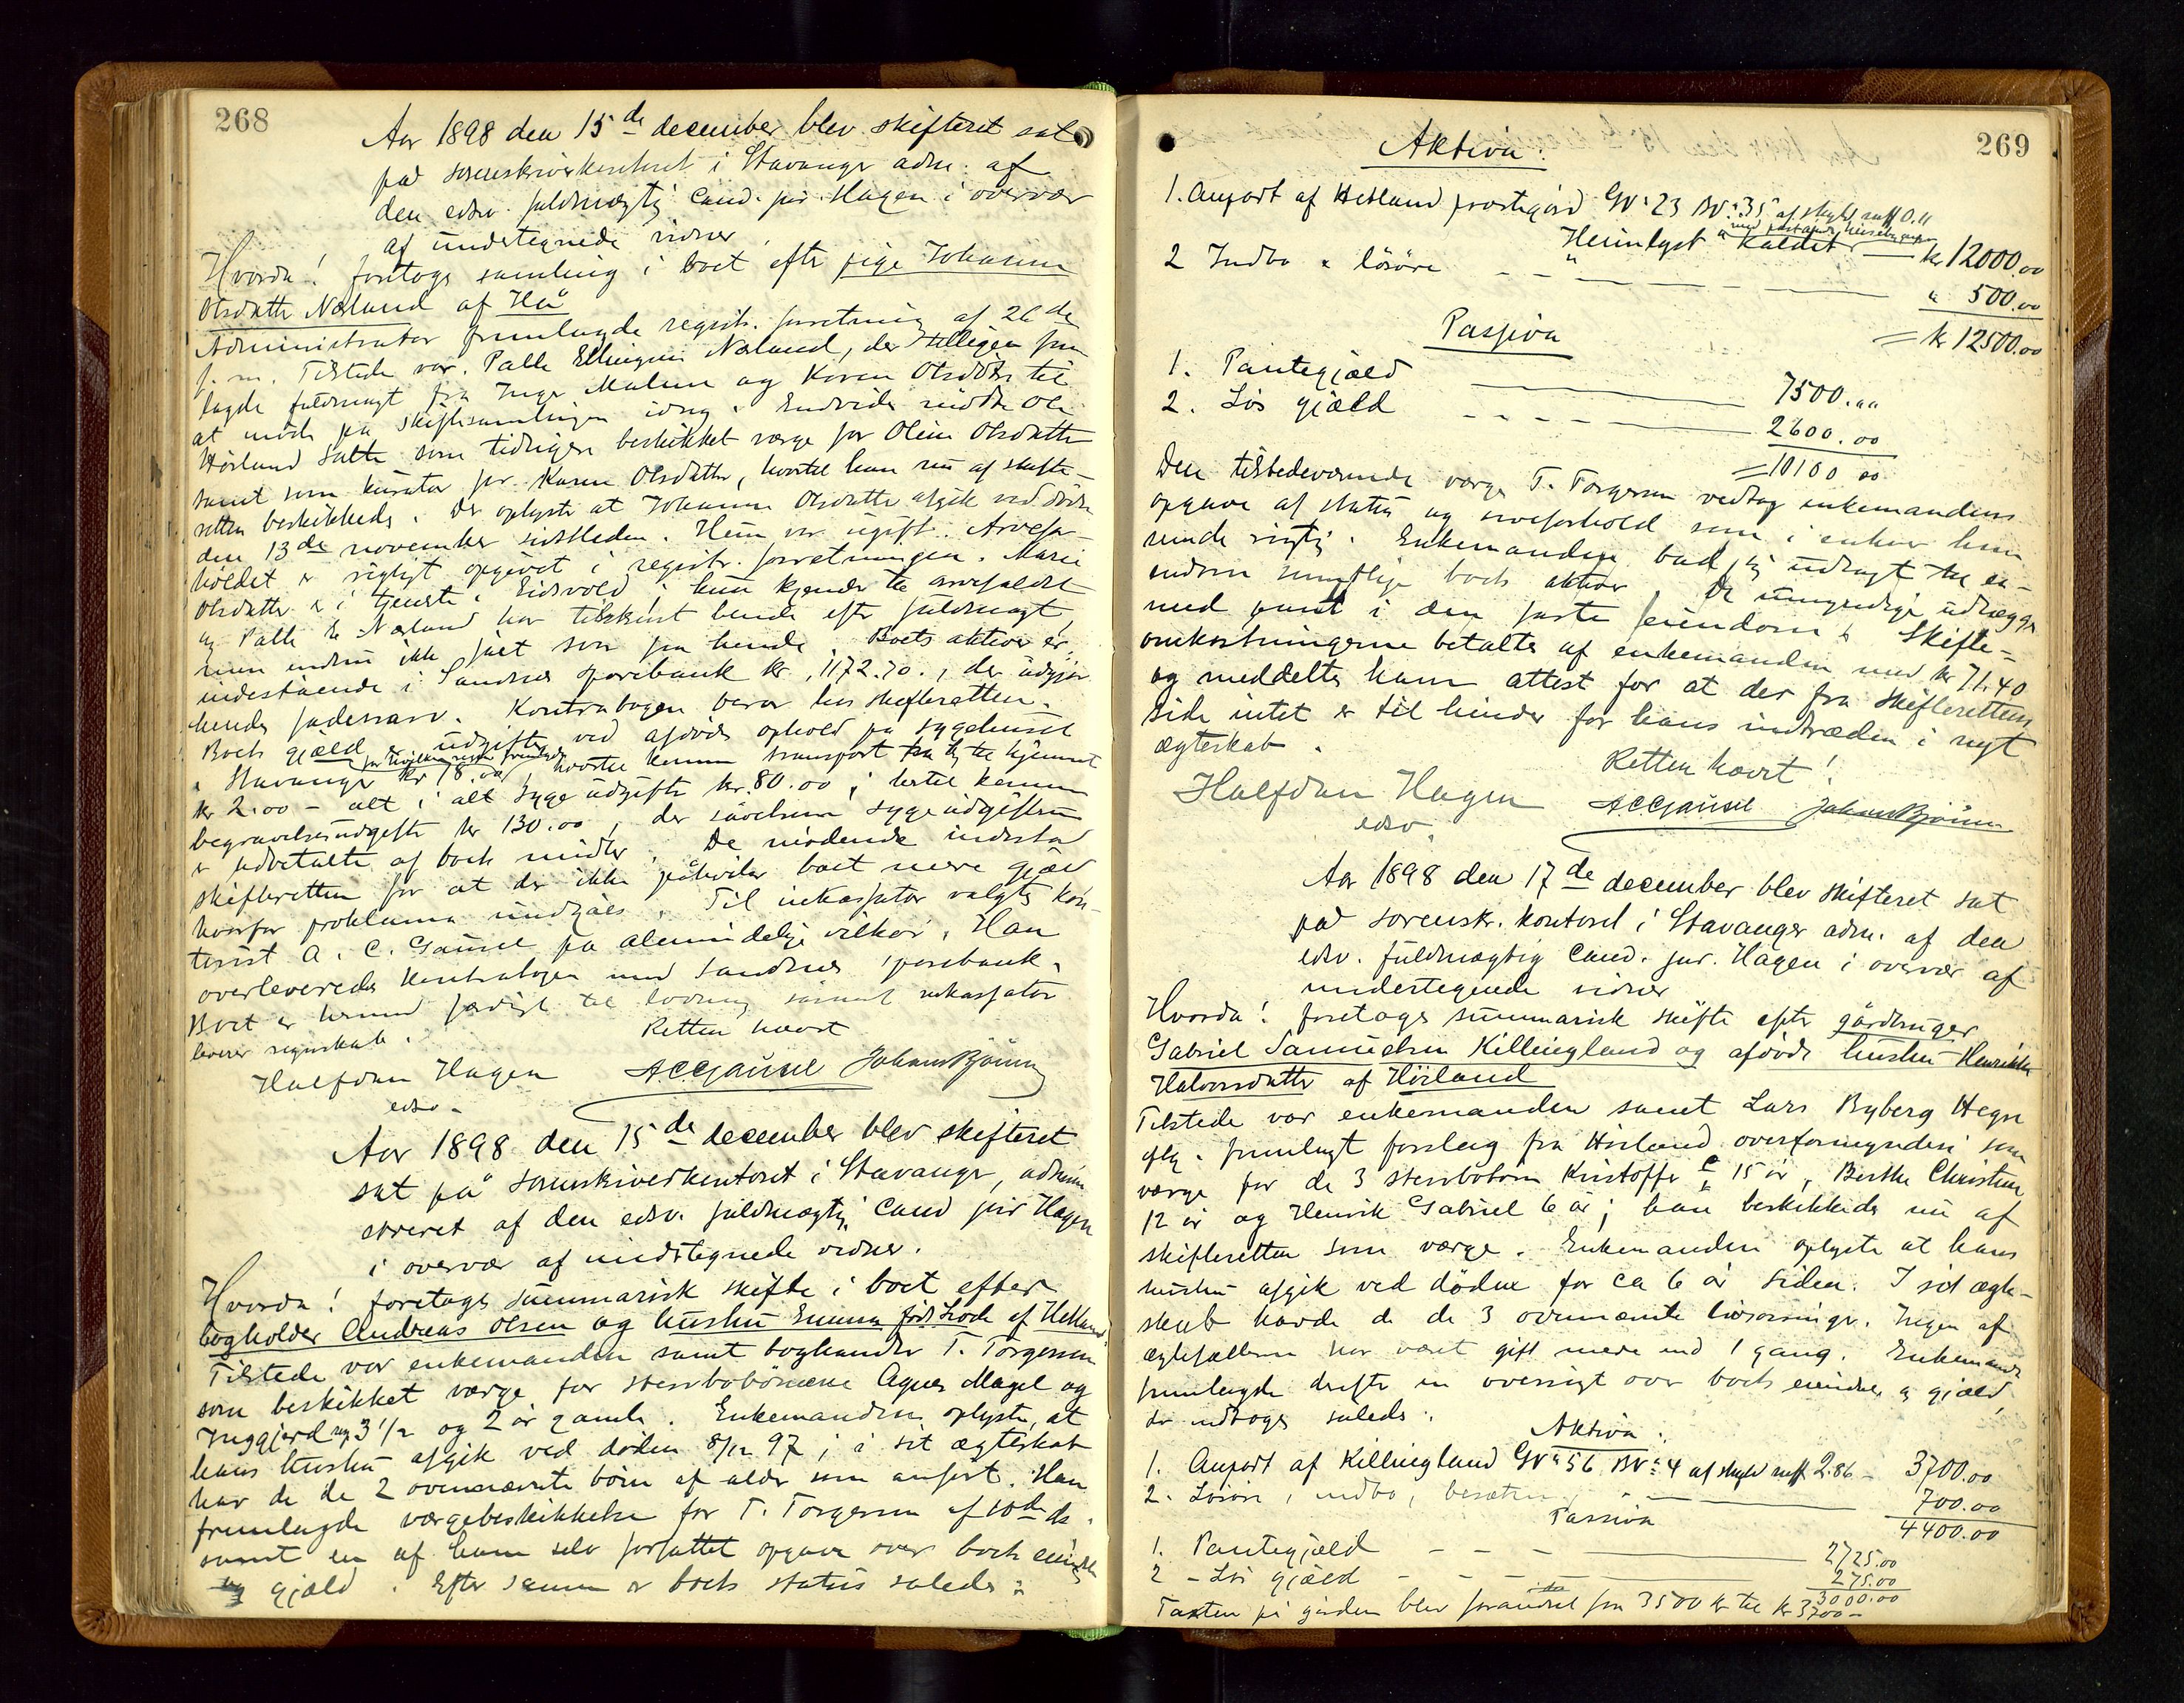 268
Aar 1898 den 15de december blev skifteret sat
på sorenskriverkontoret i Stavanger adm. af
den edsv. fuldmægtig Cand. jur. Hagen i overvær
af undertegnede vidner.
Hvorda! foretoges samling i boet efter pige Johanna
Olsdatter Næland af Hå
Administrator fremlagde registr. forretning af 26de
f. m. Tilstede var Palle Ellingsen Næland, der tilligen frem
lagde fuldmagt fra Inger Malene og Karen Olsdøtre til
at møde på skiftesamlingen idag. Endvider mødte Ole
Hørland Salte som tidligere beskikket værge for Oline Olsdatter
samt som kurator for Karen Olsdatter, hvortil han nu af skifte-
retten beskikkedes. De oplyste at Johanna Olsdatter afgik ved døden
den 13de november sidstleden. Hun var ugift. Arvefor-
holdet er rigtigt opgivet i registr. forretningen. Marie
Olsdatter er i tjeneste i Eidsvold; hun kjender til arvefaldet
og Palle E. Næland har tilskrevet hende efter fuldmagt,
men endnu ikke fået svar fra hende. Boets aktiver er
indestående i Sandnes sparebank kr. 1172.70., der udgjør
hendes fædrenearv. Kontrabogen beror hos skifteretten.
Boets gjæld er udgifter ved afdødes ophold på sygehuset
i Stavanger kr 78.00, hvortil kommer transport fra og til hjemmet
kr 2.00 – alt i alt sygeudgifter kr. 80.00; hertil kommer
begravelsesudgifter kr 130.00, der såvelsom sygeudgiften
er udbetalte af boets midler. De mødende indestod
skifteretten for at der ikke påhviler boet mere gjæld
hvorfor proklama undgåes. Til inkassator valgtes kon-
torist A. C. Gausel på almindelige vilkår. Han
overleveredes kontrabogen med Sandnes sparebank.
Boet er hermed færdigt til lodning såsnart inkassator
leverer regnskab.
Retten hævet
Halfdan Hagen A.C. Gausel Johan Bjørnson
edsv.
Aar 1898 den 15de december blev skifteret
sat på sorenskriverkontoret i Stavanger, admini
streret af den edsv. fuldmægtig Cand jur Hagen
i overvær af undertegnede vidner.
Hvorda! foretoges summarisk skifte i boet efter
bogholder Andreas Olsen og hustru Emma født Lode af Hetland
Tilstede var enkemanden samt boghandler T. Torgersen
som beskikket værge for stervbobørnene Agnes Magel og
Inggjerd resp 3 1/2 og 2 år gamle. Enkemanden oplyste, at
hans hustru afgik ved døden 8/12 97; i sit ægteskab
har de de 2 ovennævnte børn af alder som anført. Han
fremlagde værgebeskikkelse for T. Torgersen af 10de ds.
samt en af ham selv forfattet opgave over boets eiendele
og gjæld. Efter samme er boets status saaledes:
269
Aktiva:
1. Anpart af Hetland prestegård GNr 23 BNr 35 af skyld mark 0.11
med påstående husebygninger
Heimlyst kaldet kr 12000.00
2 Indbo & løsøre " 500.00
= kr 12500.00
Passiva
1. Pantegjæld 7500.00
2. Løs gjæld 2600.00
= 10100 00
Den tilstedeværende værge T. Torgersen vedtog enkemandens
opgave af status og arveforhold som i enhver hen-
seende rigtig. Enkemanden bad sig udlagt til ei-
endom samtlige boets aktiver. De umyndige udlægges
med pant i den faste eiendom. Skifte-
omkostningerne betaltes af enkemanden med kr 71.40
og meddeltes ham attest for at der fra skifterettens
side intet er til hinder for hans indtræden i nyt
ægteskab.
Retten hævet!
Halfdan Hagen A.C. Gausel Johan Bjørnson
edsv.
Aar 1898 den 17de december blev skifteret sat
på sorenskr. kontoret i Stavanger adm. af den
edsv. fuldmægtig Cand. jur. Hagen i overvær af
undertegnede vidner
Hvorda! foretoges summarisk skifte efter gårdbruger
Gabriel Samuelsen Killingland og afdøde hustru Henrikke
Halvorsdatter af Høiland
Tilstede var enkemanden samt Lars Byberg Hegre
iflg. fremlagt forslag fra Høiland overformynderi som
værge for de 3 stervbobørn Kristoffer 15 år, Berthe Christine
12 år og Henrik Gabriel 6 år; han beskikkedes nu af
skifteretten som værge. Enkemanden oplyste at hans
hustru afgik ved døden for ca 6 år siden. I sit ægte-
skab havde de de 3 ovennævnte livsarvinger. Ingen af
ægtefællerne har været gift mere end 1 gang. Enkemanden
fremlagde derefter en oversigt over boets eiendele og gjæld,
der indtoges saaledes:
Aktiva:
1. Anpart af Killingland GNr 56 BNr 4 af skyld mark 2.86 – 3700.00
2. Løsøre, indbo, besætning 700.00
4400.00
Passiva
1. Pantegjæld 2725.00
2 – Løs gjæld 275.00
3000.00
Taxten på gården blev forandret fra 3500 kr til kr 3700 –